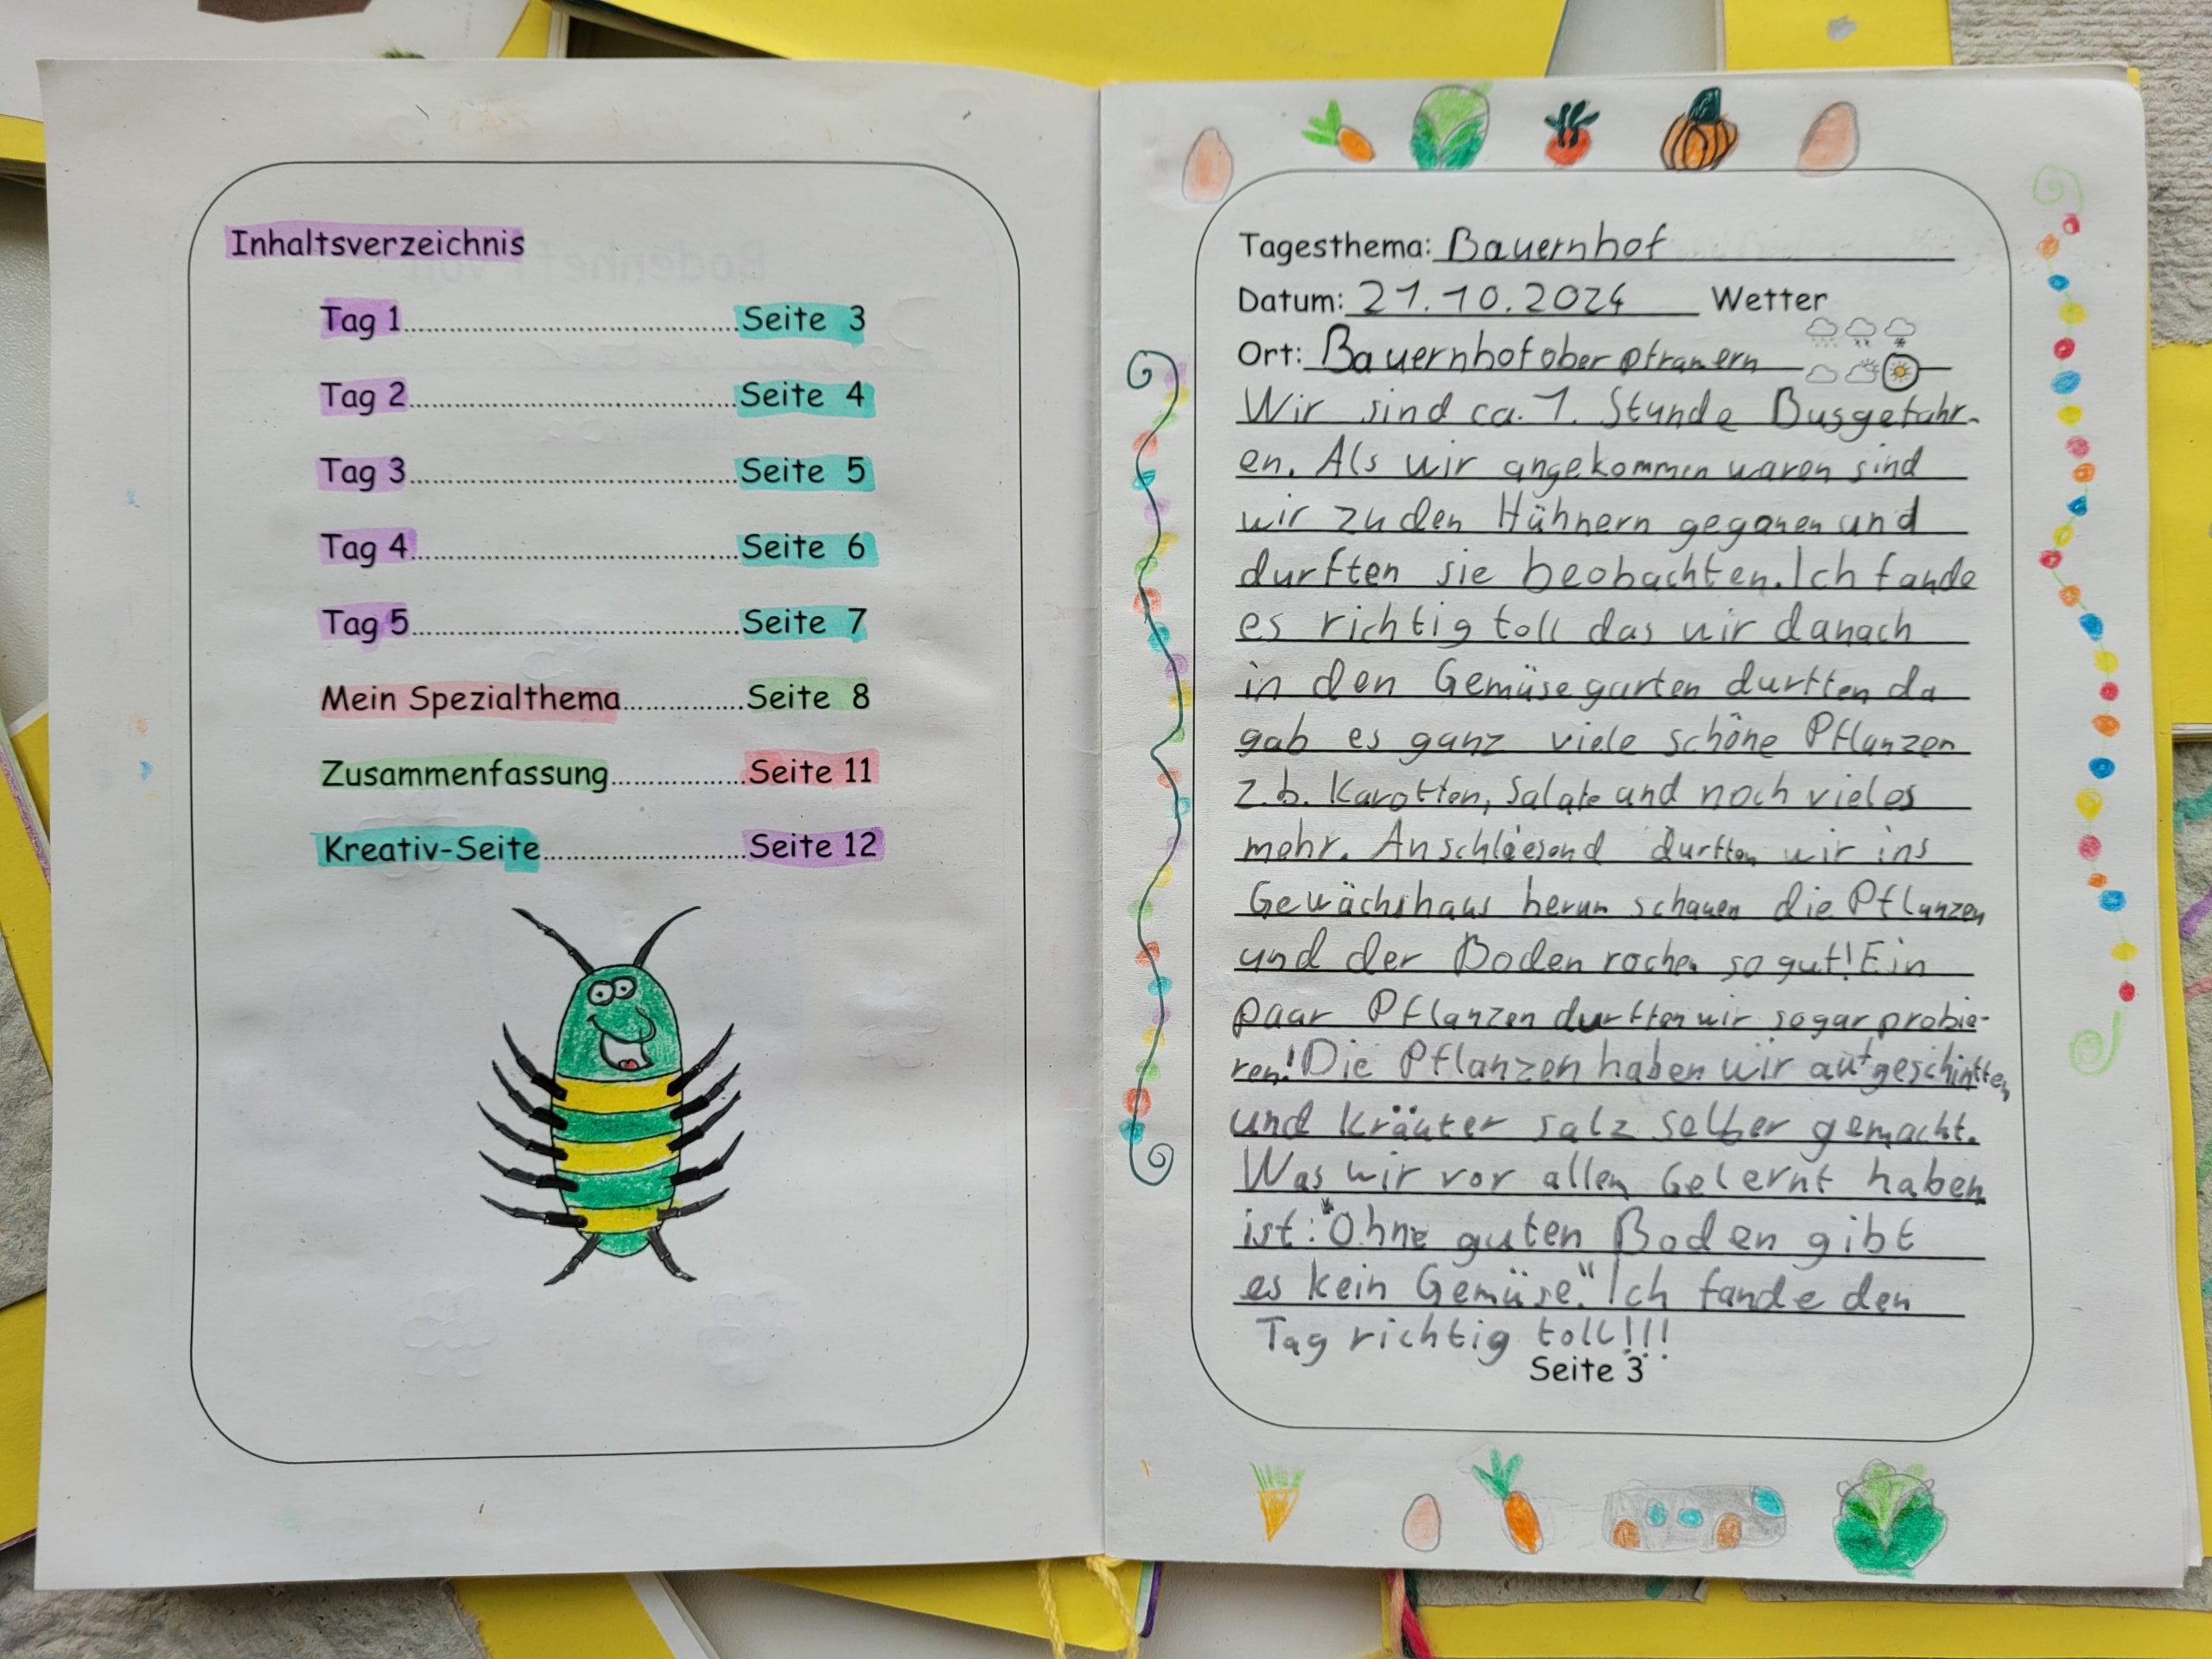 Inhaltsverzeichnis
Tag 1........................................Seite 3
Tag 2........................................Seite 4
Tag 3........................................Seite 5
Tag 4........................................Seite 6
Tag 5........................................Seite 7
Mein Spezialthema...............Seite 8
Zusammenfassung................Seite 11
Kreativ-Seite........................Seite 12
Tagesthema: Bauernhof
Datum: 21.10.2024 Wetter
Ort: Bauernhof oberpframern
Wir sind ca. 1. Stunde Busgefahr-
en. Als wir angekommen waren sind
wir zu den Hühnern gegangen und
durften sie beobachten. Ich fande
es richtig toll das wir danach
in den Gemüsegarten durften da
gab es ganz viele schöne Pflanzen
z.b. Karotten, Salate und noch vieles
mehr. Anschliesend durften wir ins
Gewächshaus herum schauen die Pflanzen
und der Boden rochen so gut! Ein
paar Pflanzen durften wir sogar probie-
ren! Die Pflanzen haben wir aufgeschintten
und Kräuter salz selber gemacht.
Was wir vor allem Gelernt haben
ist: "Ohne guten Boden gibt
es kein Gemüse." Ich fande den
Tag richtig toll!!!
Seite 3